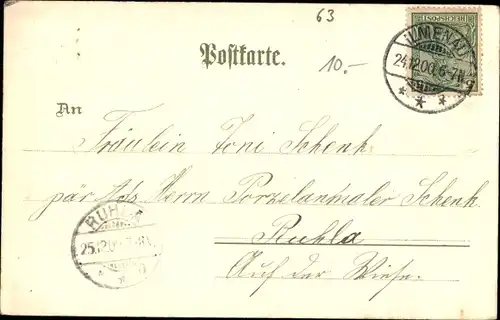 63
Postkarte.
10.-
REICHSPOST
ILMENAU
24.12.00. 6-7N.
An
Fräulein Toni Schenk
pär Ads. Herrn Porzelanmaler Schenk
Ruhla
Auf der Wiese.
RUHLA
25.12.00.